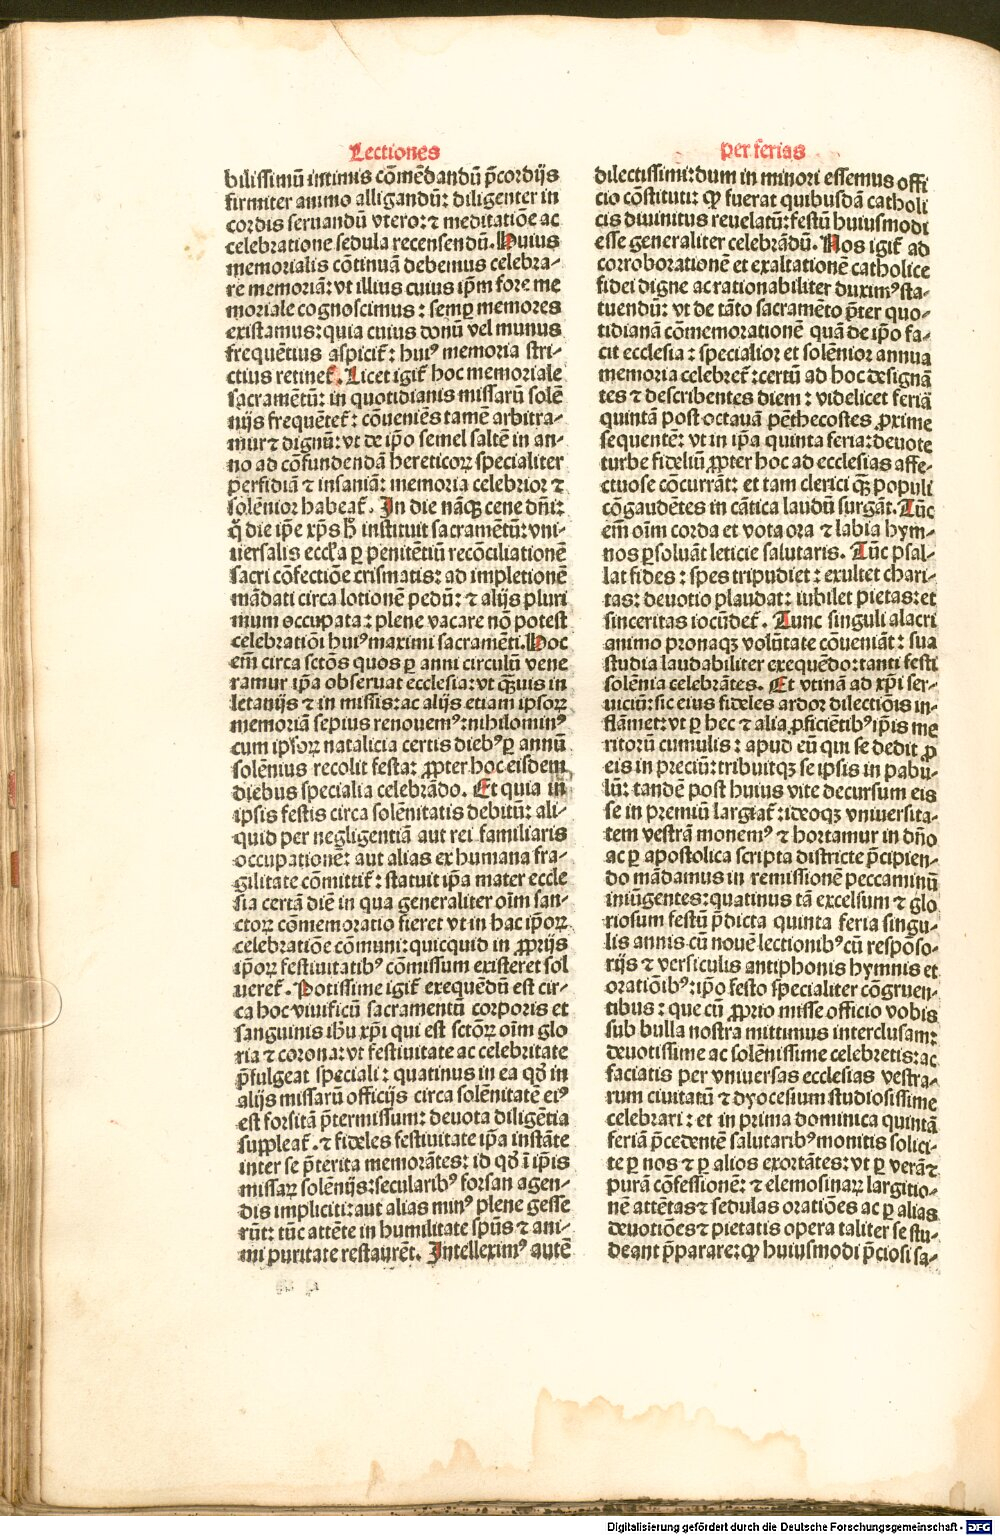 Lectiones
bilissimū intimis cōmēdandū p̄cordijs
firmiter animo alligandū: diligenter in
cordis seruandū vtero: ⁊ meditatiōe ac
celebratione sedula recensendū. Huius
memorialis cōtinuā debemus celebra-
re memoriā: vt illius cuius ip̄m fore me
moriale cognoscimus: semꝑ memores
existamus: quia cuius donū vel munus
frequētius aspicit̄: huiꝰ memoria stri-
ctius retinet̄. Licet igit̄ hoc memoriale
sacramētū: in quotidianis missarū solē
nijs frequētet̄: cōueniēs tamē arbitra-
mur ⁊ dignū: vt de ip̄o semel saltē in an-
no ad cōfundendā hereticoꝝ specialiter
perfidiā ⁊ insaniā: memoria celebrior ⁊
solēnior habeat̄. In die nāqꝫ cene dn̄i:
q̄ die ip̄e xp̄s h̄ instituit sacramētū: vni-
uersalis eccl̄ia ꝑ penitētiū recōciliationē
sacri cōfectiōe crismatis: ad impletionē
mādati circa lotionē pedū: ⁊ alijs pluri
mum occupata: plene vacare nō potest
celebratiōi huiꝰ maximi sacramēti. Hoc
em̄ circa sctōs quos ꝑ anni circulū vene
ramur ip̄a obseruat ecclesia: vt qꝫuis in
letanijs ⁊ in missis: ac alijs etiam ipsoꝝ
memoriā sepius renouemꝰ: nihilominꝰ
cum ipsoꝝ natalicia certis diebꝰ ꝑ annū
solēnius recolit festa: ꝓpter hoc eisdem
diebus specialia celebrādo. Et quia in
ipsis festis circa solēnitatis debitū: ali-
quid per negligentiā aut rei familiaris
occupationē: aut alias ex humana fra-
gilitate cōmittit̄: statuit ip̄a mater eccle
sia certā diē in qua generaliter oīm san-
ctoꝝ cōmemoratio fieret vt in hac ip̄oꝝ
celebratiōe cōmuni: quicquid in ꝓprijs
ip̄oꝝ festiuitatibꝰ cōmissum existeret sol
ueret̄. Potissime igit̄ exequēdū est cir-
ca hoc viuificū sacramentū corporis et
sanguinis ih̄u xp̄i qui est sctōꝝ oīm glo
ria ⁊ corona: vt festiuitate ac celebritate
p̄fulgeat speciali: quatinus in ea qd̄ in
alijs missarū officijs circa solēnitatē eiꝰ
est forsitā p̄termissum: deuota diligētia
suppleat̄. ⁊ fideles festiuitate ip̄a instāte
inter se p̄terita memorātes: id qd̄ ī ip̄is
missaꝝ solēnijs: secularibꝰ forsan agen-
dis impliciti: aut alias minꝰ plene gesse
rūt: tūc attēte in humilitate sp̄us ⁊ ani-
mi puritate restaurēt. Intelleximꝰ autē
per ferias
dilectissimi: dum in minori essemus offi
cio cōstituti: ꝙ fuerat quibusdā catholi
cis diuinitus reuelatū: festū huiusmodi
esse generaliter celebrādū. Nos igit̄ ad
corroborationē et exaltationē catholice
fidei digne ac rationabiliter duximꝰ sta-
tuendū: vt de tāto sacramēto p̄ter quo-
tidianā cōmemorationē quā de ip̄o fa-
cit ecclesia: specialior et solēnior annua
memoria celebret̄: certū ad hoc designā
tes ⁊ describentes diem: videlicet feriā
quintā post octauā pēthecostes ꝓxime
sequentē: vt in ip̄a quinta feria: deuote
turbe fideliū ꝓpter hoc ad ecclesias affe-
ctuose cōcurrāt: et tam clerici qꝫ populi
cōgaudētes in cātica laudū surgāt. Tūc
em̄ oīm corda et vota ora ⁊ labia hym-
nos ꝑsoluāt leticie salutaris. Tūc psal-
lat fides: spes tripudiet: exultet chari-
tas: deuotio plaudat: iubilet pietas: et
sinceritas iocūdet̄. Tunc singuli alacri
animo pronaqꝫ volūtate cōueniāt: sua
studia laudabiliter exequēdo: tanti festi
solēnia celebrātes. Et vtinā ad xp̄i ser-
uiciū: sic eius fideles ardor dilectiōis in-
flāmet: vt ꝑ hec ⁊ alia ꝓficiētibꝰ ip̄is me
ritorū cumulis: apud eū qui se dedit ꝓ
eis in preciū: tribuitqꝫ se ipsis in pabu-
lū: tandē post huius vite decursum eis
se in premiū largiat̄: ideoqꝫ vniuersita-
tem vestrā monemꝰ ⁊ hortamur in dn̄o
ac ꝑ apostolica scripta districte p̄cipien-
do mādamus in remissionē peccaminū
iniūgentes: quatinus tā excelsum ⁊ glo
riosum festū p̄dicta quinta feria singu-
lis annis cū nouē lectionibꝰ cū respōso-
rijs ⁊ versiculis antiphonis hymnis et
oratiōibꝰ: ip̄o festo specialiter cōgruen-
tibus: que cū ꝓprio misse officio vobis
sub bulla nostra mittimus interclusam:
deuotissime ac solēnissime celebretis: ac
faciatis per vniuersas ecclesias vestra-
rum ciuitatū ⁊ dyocesium studiosissime
celebrari: et in prima dominica quintā
feriā p̄cedentē salutaribꝰ monitis solici-
te ꝑ nos ⁊ ꝑ alios exortātes: vt ꝑ verā ⁊
purā cōfessionē: ⁊ elemosinaꝝ largitio-
nē attētas ⁊ sedulas oratiōes ac ꝑ alias
deuotiōes ⁊ pietatis opera taliter se stu-
deant p̄parare: ꝙ huiusmodi p̄ciosi sa-
Digitalisierung gefördert durch die Deutsche Forschungsgemeinschaft - DFG